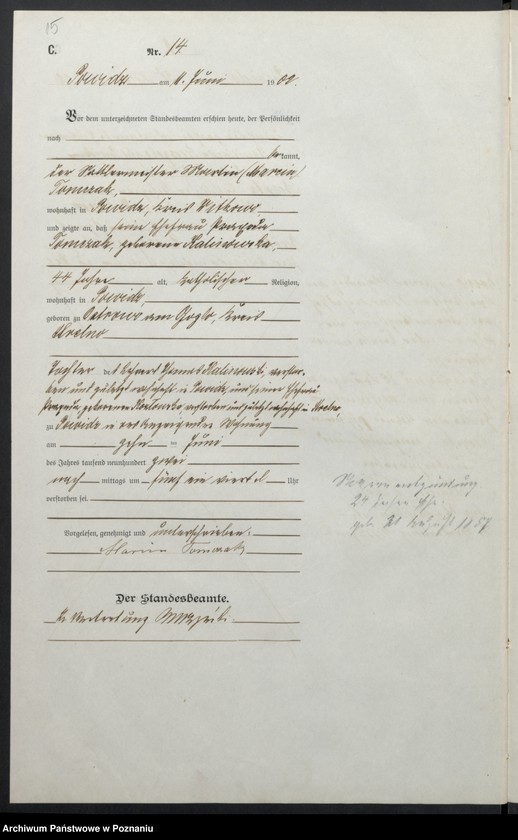 15
C.
Nr. 14
Powidz am Juni 1902.
Vor dem unterzeichneten Standesbeamten erschien heute, der Persönlichkeit
nach
bekannt,
der Sattlermeister Martin (Marcin)
Tomczak,
wohnhaft in Powidz, Kreis Witkowo
und zeigte an, daß seine Ehefrau
Tomczak, geborene Kaliszewska,
44 Jahre alt, katholischer Religion,
wohnhaft in Powidz,
geboren zu Ostrowo am Goplo, Kreis
Strelno
Tochter des Thomas verstor-
ben und zuletzt wohnhaft in Powidz und seiner Ehefrau
geborenen verstorben und zuletzt wohnhaft in Strelno,
zu Powidz in Wohnung
am zehn ten Juni
des Jahres tausend neunhundert zwei
nach mittags um fünf ein viertel Uhr
verstorben sei.
Vorgelesen, genehmigt und unterschrieben.
Marcin Tomczak
Der Standesbeamte.
In Vertretung
24 Jahre
geb. 1857
Archiwum Państwowe w Poznaniu